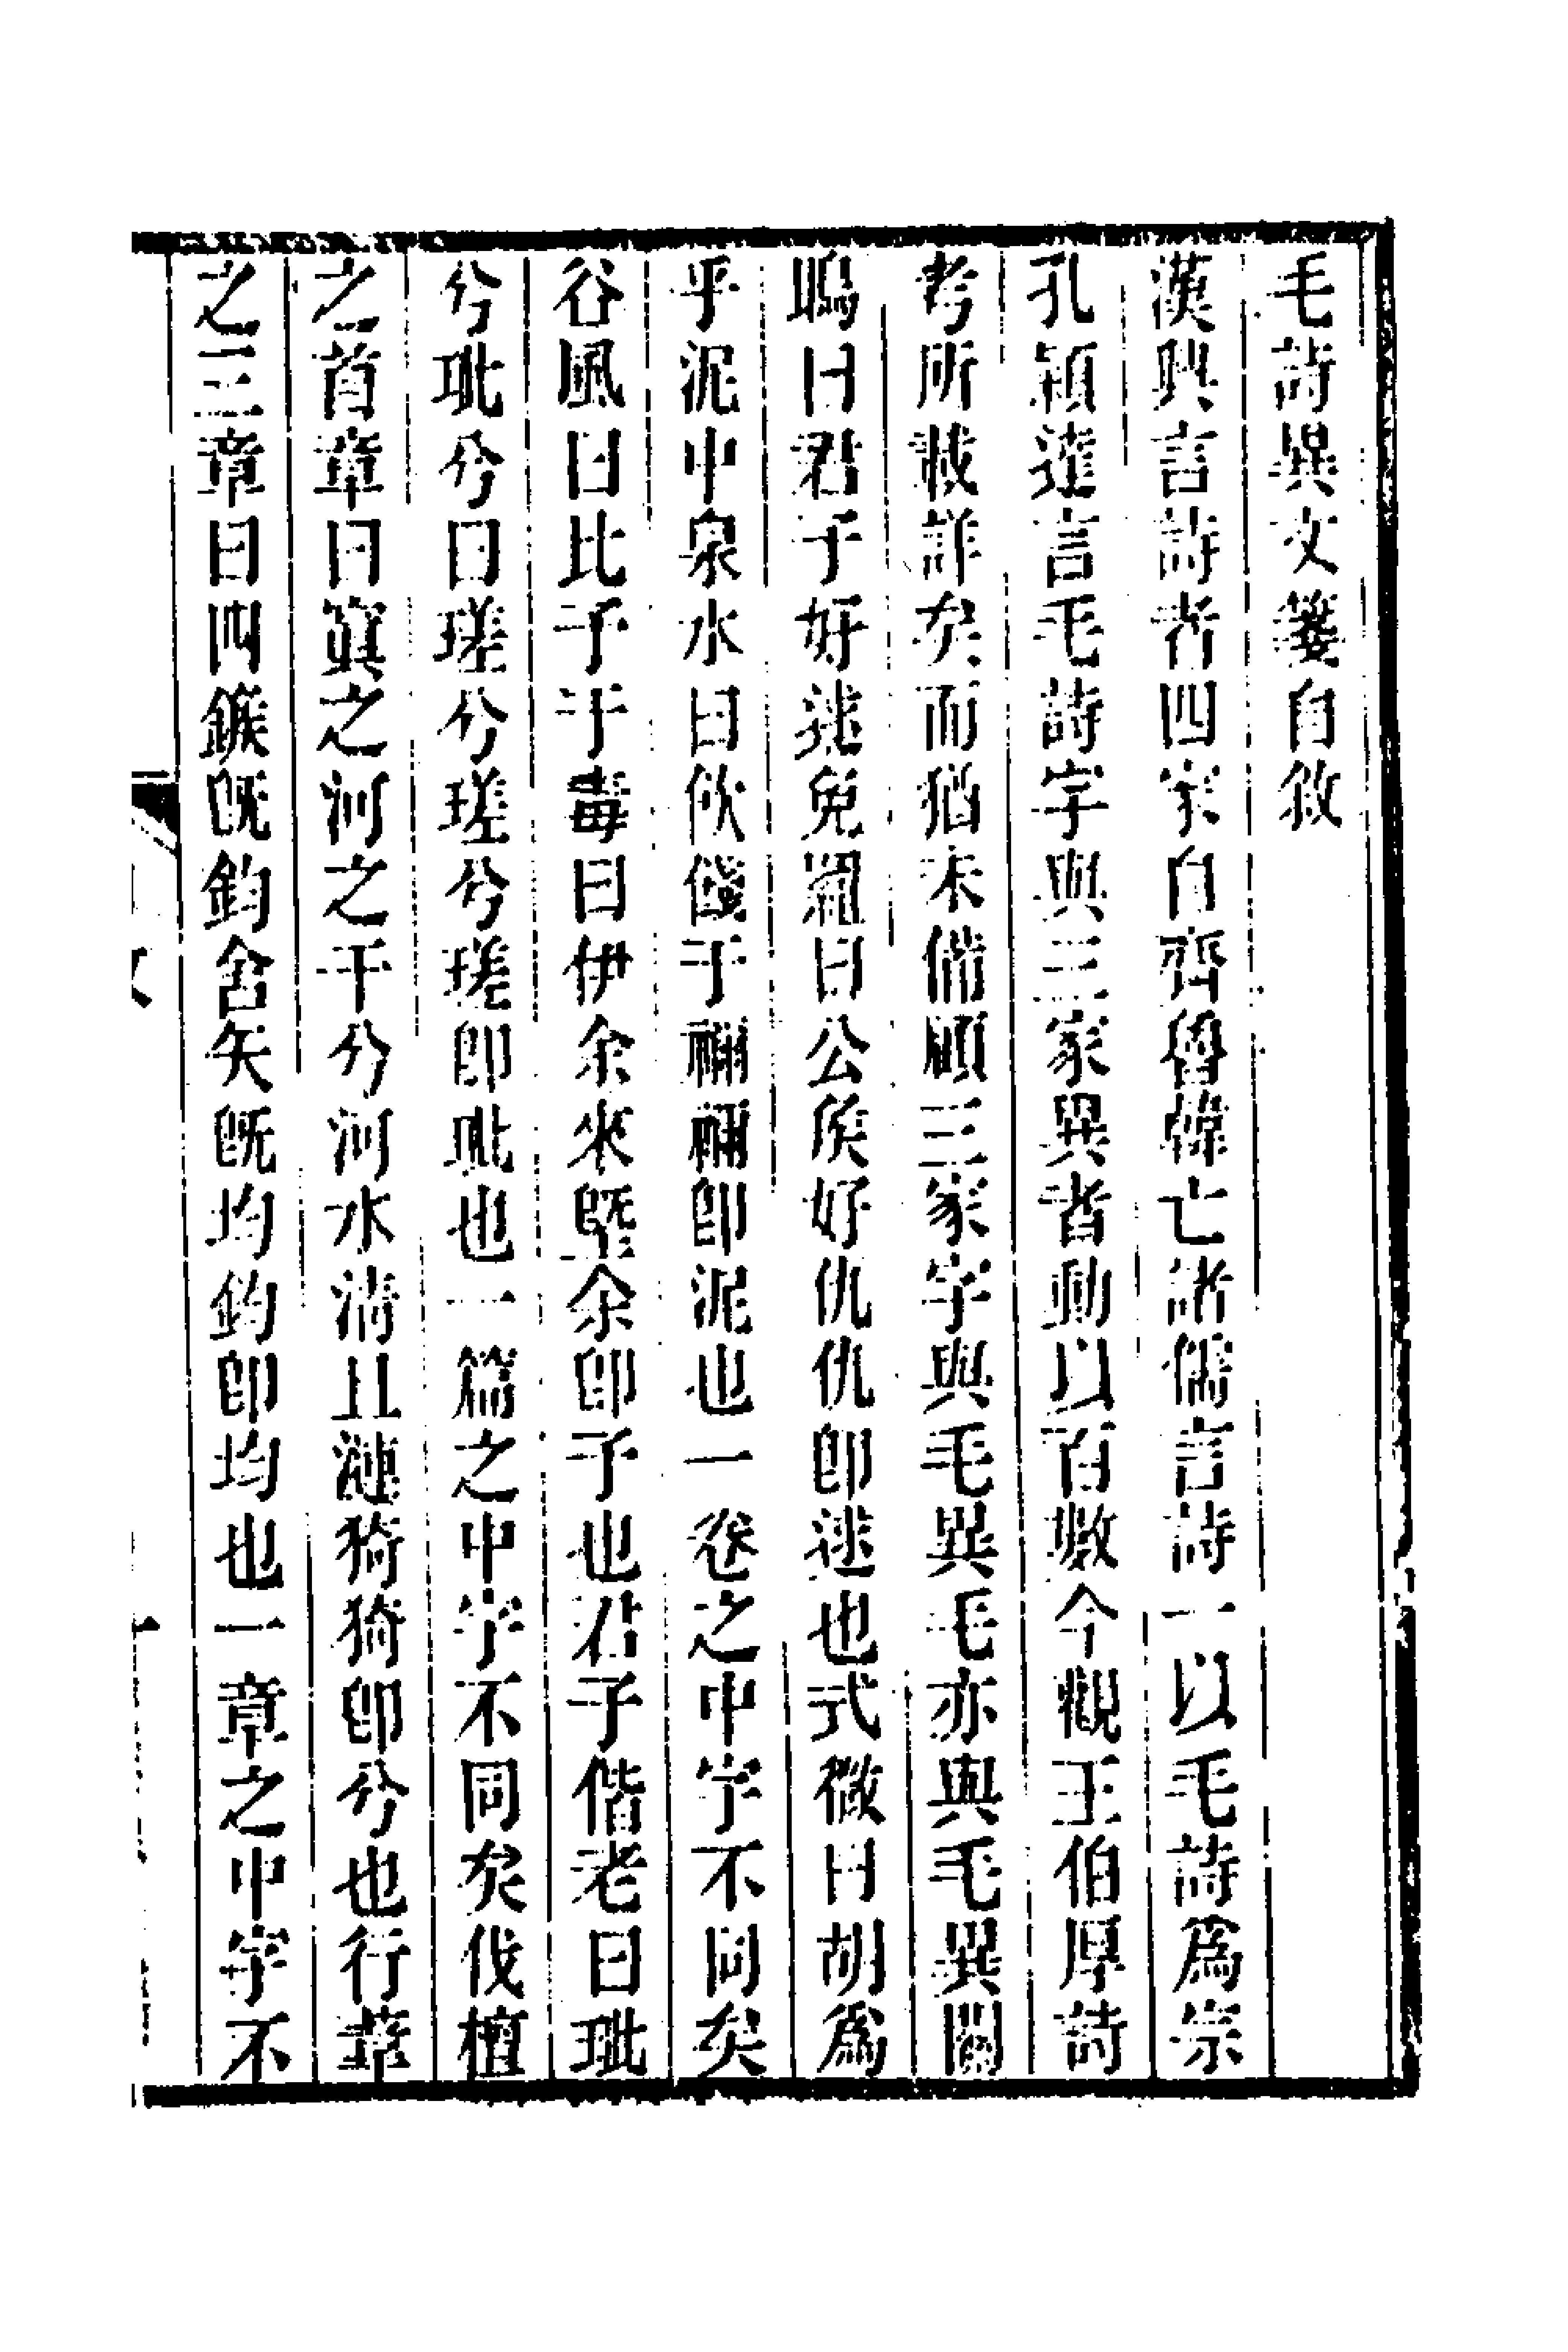 毛詩異文箋自敘
漢興言詩者四家自齊魯韓亡諸儒言詩一以毛詩爲宗
孔穎達言毛詩字與三家異者動以百數今觀王伯厚詩
考所載詳矣而猶未備顧三家字與毛異毛亦與毛異關
鳴曰君子好逑兔罝曰公侯好仇仇卽逑也式微曰胡爲
乎泥中泉水曰飲餞于禰禰卽泥也一卷之中字不同矣
谷風曰比予于毒曰伊余來墍余卽予也君子偕老曰玼
兮玼兮曰瑳兮瑳兮瑳卽玼也一篇之中字不同矣伐檀
之首章曰寘之河之干兮河水清且漣猗猗卽兮也行葦
之三章曰四鍭旣鈞舍矢旣均鈞卽均也一章之中字不